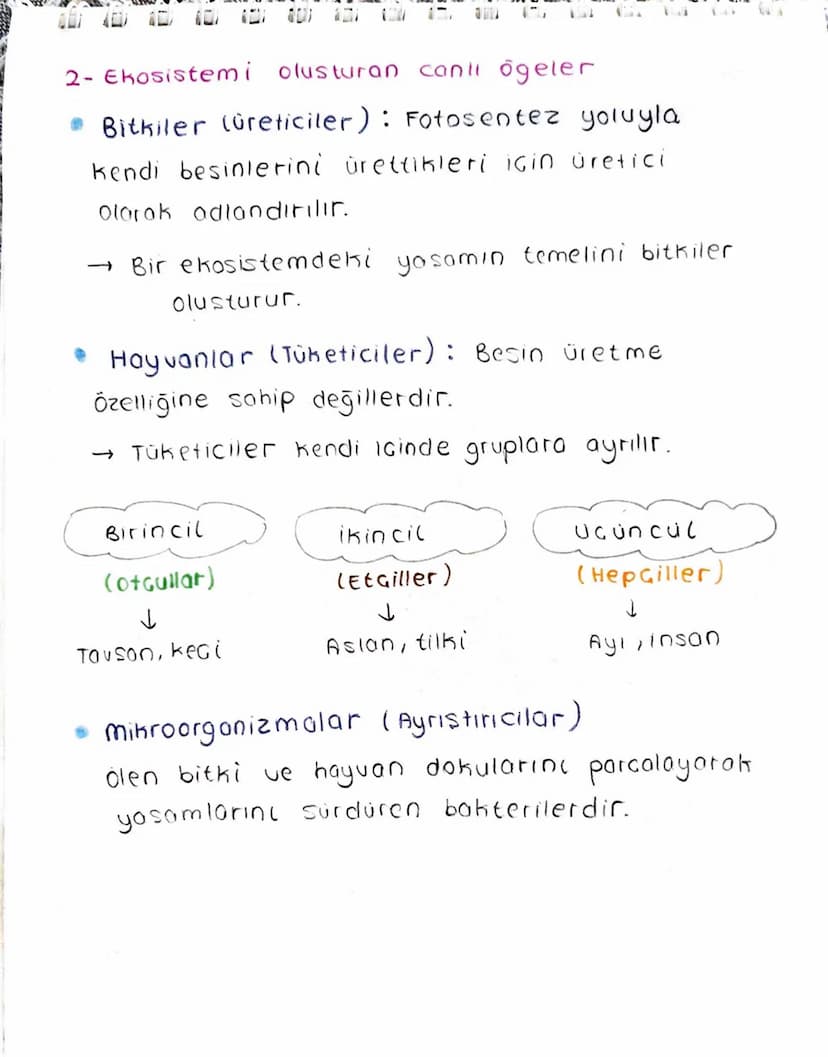 2- Ekosistemi olusturan canlı ögeler
• Bitkiler (üreticiler) : Fotosentez yoluyla
kendi besinlerini ürettikleri icin üretici
olarak adlandırılır.
→ Bir ekosistemdeki yasamın temelini bitkiler
olusturur.
• Hayvanlar (Tüketiciler) : Besin üretme
özelliğine sahip değillerdir.
→ Tüketiciler kendi icinde gruplara ayrılır.
Birincil İkincil Ucüncül
(otcullar) (Etciller) (Hepciller)
↓ ↓ ↓
Tavsan, keci Aslan, tilki Ayı, insan
• Mikroorganizmalar (Ayrıstırıcılar)
ölen bitki ve hayvan dokularını parcalayarak
yasamlarını sürdüren bakterilerdir.